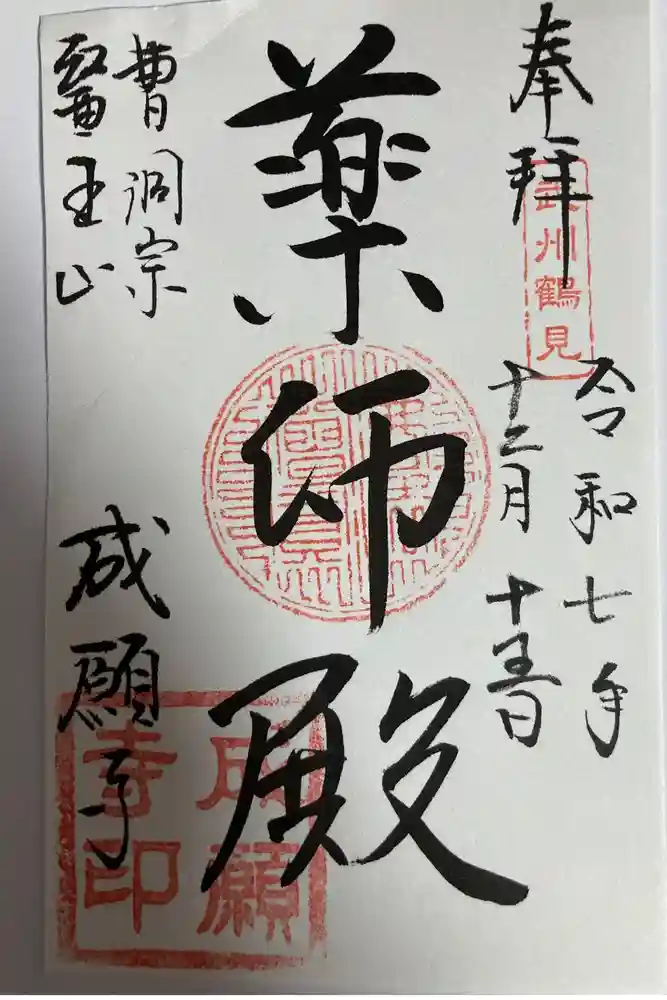 奉拝
武州鶴見
令和七年
十二月
薬師殿
曹洞宗
醫王山
成願寺
成願
寺印